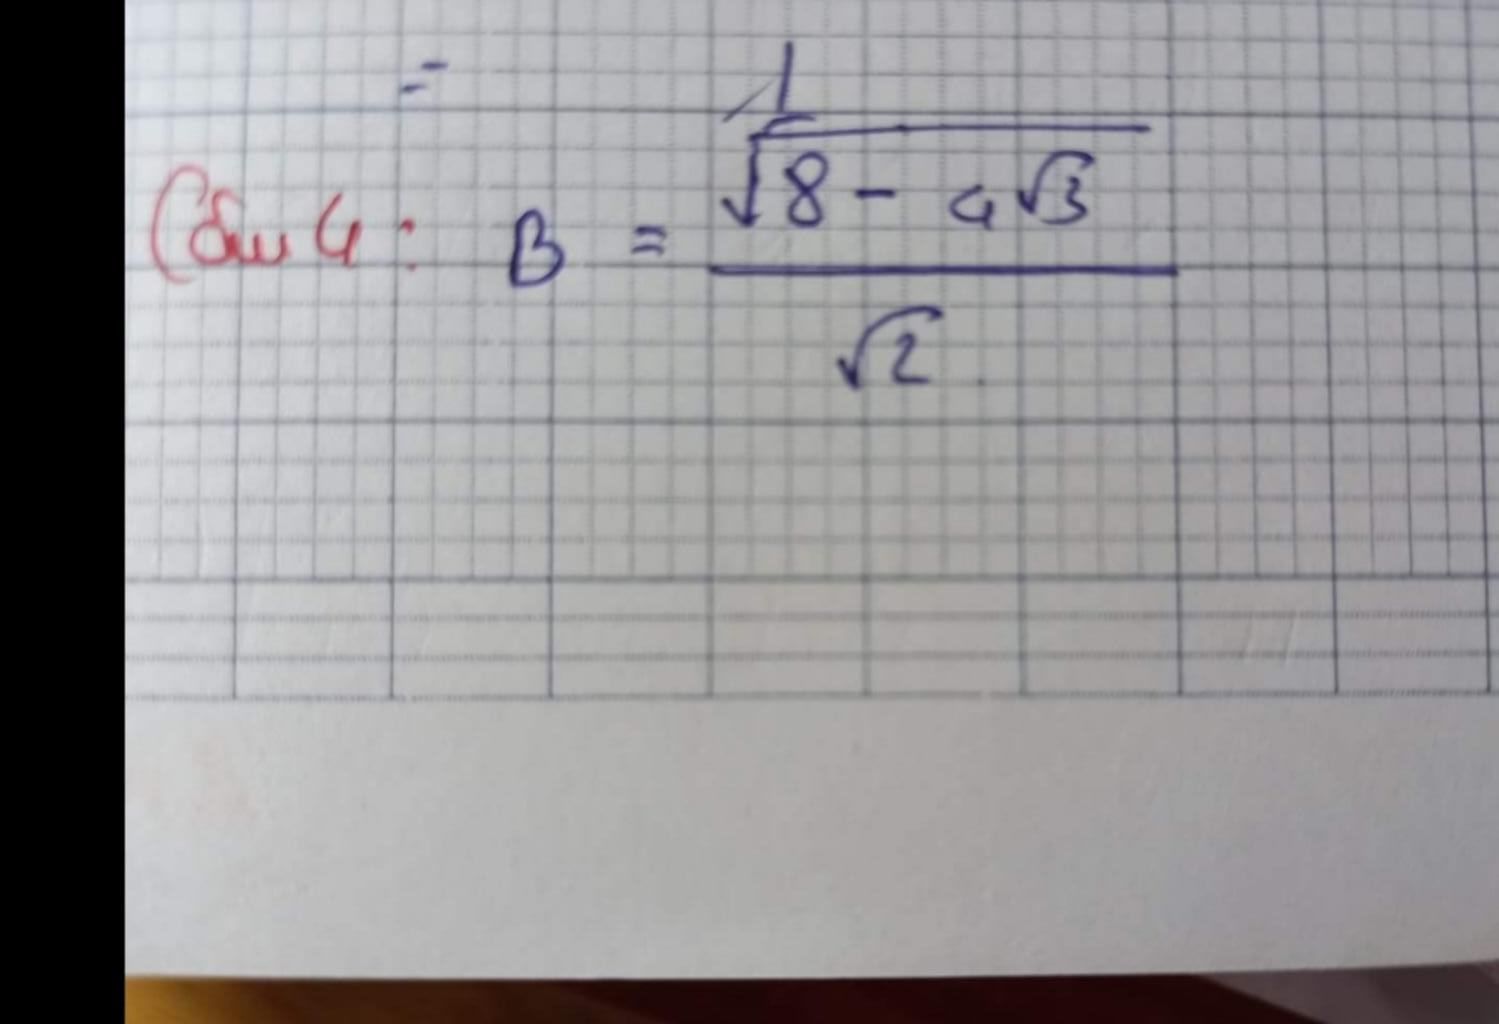 =
Câu 4 : B = √(8 - 4√3) / √2